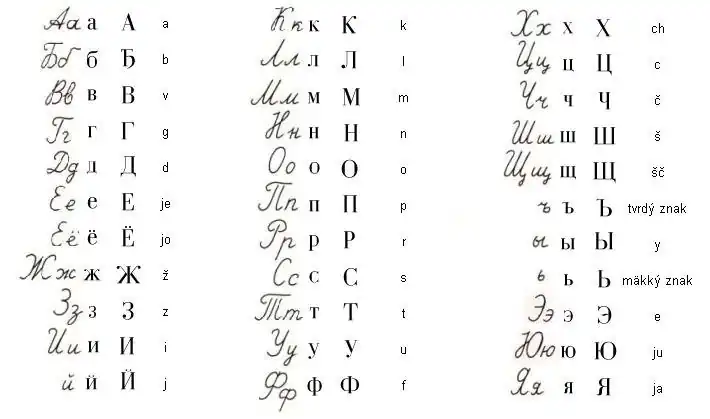 Аа а А a
Бб б Б b
Вв в В v
Гг г Г g
Дд д Д d
Ее е Е je
Ёё ё Ё jo
Жж ж Ж ž
Зз з З z
Ии и И i
й й Й j
Кк к К k
Лл л Л l
Мм м М m
Нн н Н n
Оо о О o
Пп п П p
Рр р Р r
Сс с С s
Тт т Т t
Уу у У u
Фф ф Ф f
Хх х Х ch
Цц ц Ц c
Чч ч Ч č
Шш ш Ш š
Щщ щ Щ šč
ъ ъ Ъ tvrdý znak
ы ы Ы y
ь ь Ь mäkký znak
Ээ э Э e
Юю ю Ю ju
Яя я Я ja